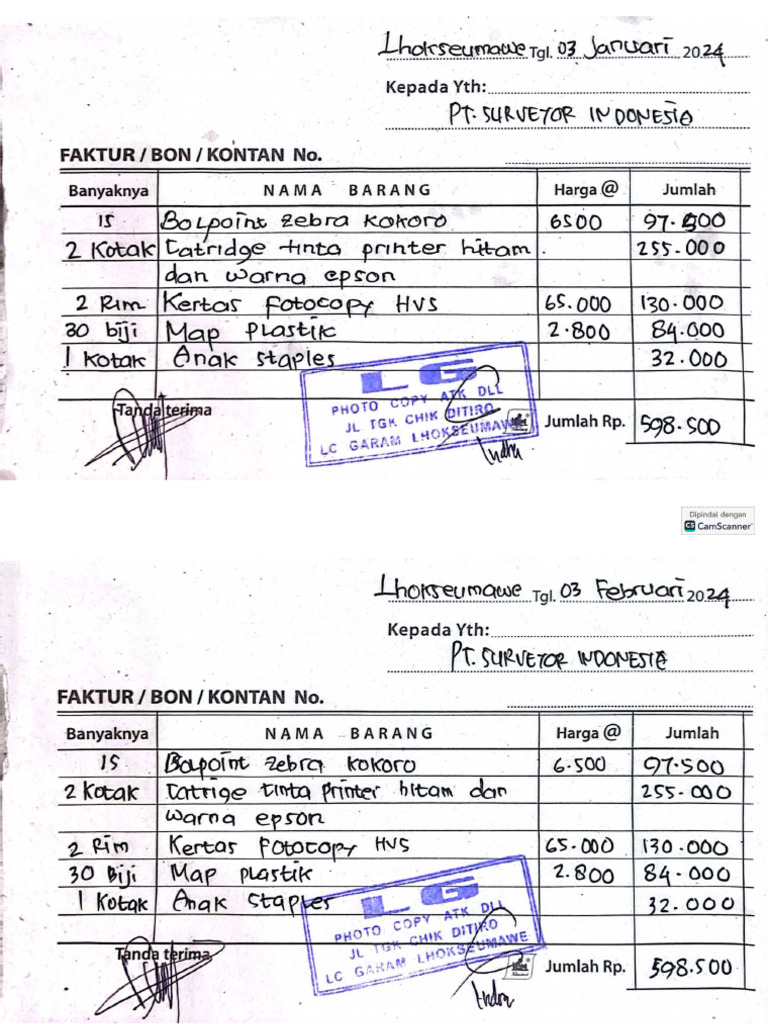 Lhokseumawe Tgl. 03 Januari 2024
Kepada Yth:
PT. SURVEYOR INDONESIA
FAKTUR / BON / KONTAN No.
Banyaknya NAMA BARANG Harga @ Jumlah
15 Bolpoint Zebra Kokoro 6500 97.500
2 Kotak Catridge tinta printer hitam 255.000
dan warna epson
2 Rim Kertas Fotocopy HVS 65.000 130.000
30 biji Map plastik 2.800 84.000
1 Kotak Anak staples 32.000
Tanda terima
LG
PHOTO COPY ATK DLL
JL TGK CHIK DITIRO
LC GARAM LHOKSEUMAWE
Indra
Jumlah Rp. 598.500
Dipindai dengan
CS CamScanner
Lhokseumawe Tgl. 03 Februari 2024
Kepada Yth:
PT. SURVEYOR INDONESIA
FAKTUR / BON / KONTAN No.
Banyaknya NAMA BARANG Harga @ Jumlah
15 Bolpoint Zebra Kokoro 6.500 97.500
2 Kotak Catrige tinta printer hitam dan 255.000
warna epson
2 Rim Kertas Fotocopy HVS 65.000 130.000
30 Biji Map plastik 2.800 84.000
1 Kotak Anak staples 32.000
Tanda terima
LG
PHOTO COPY ATK DLL
JL TGK CHIK DITIRO
LC GARAM LHOKSEUMAWE
Indra
Jumlah Rp. 598.500